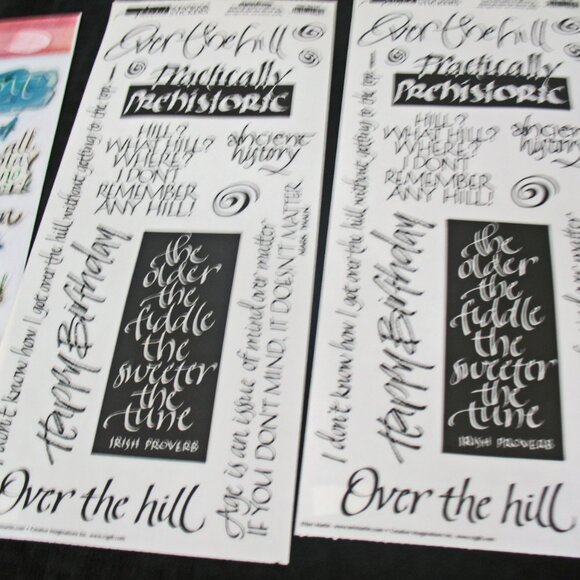 Over the hill
Practically
Prehistoric
HILL?
WHAT HILL?
WHERE?
I DON'T
REMEMBER
ANY HILL!
ancient
history
I don't know how I got over the hill without getting to the top!
Happy Birthday
the
older
the
fiddle
the
sweeter
the
tune
IRISH PROVERB
Age is an issue of mind over matter
IF YOU DON'T MIND, IT DOESN'T MATTER
MARK TWAIN
Over the hill
Over the hill
Practically
Prehistoric
HILL?
WHAT HILL?
WHERE?
I DON'T
REMEMBER
ANY HILL!
ancient
history
I don't know how I got over the hill without getting to the top!
Happy Birthday
the
older
the
fiddle
the
sweeter
the
tune
IRISH PROVERB
Over the hill